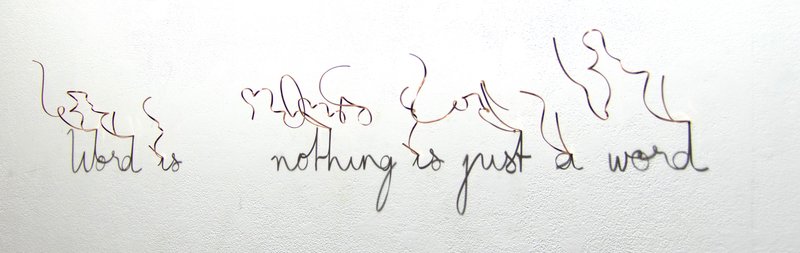 Word is nothing is just a word